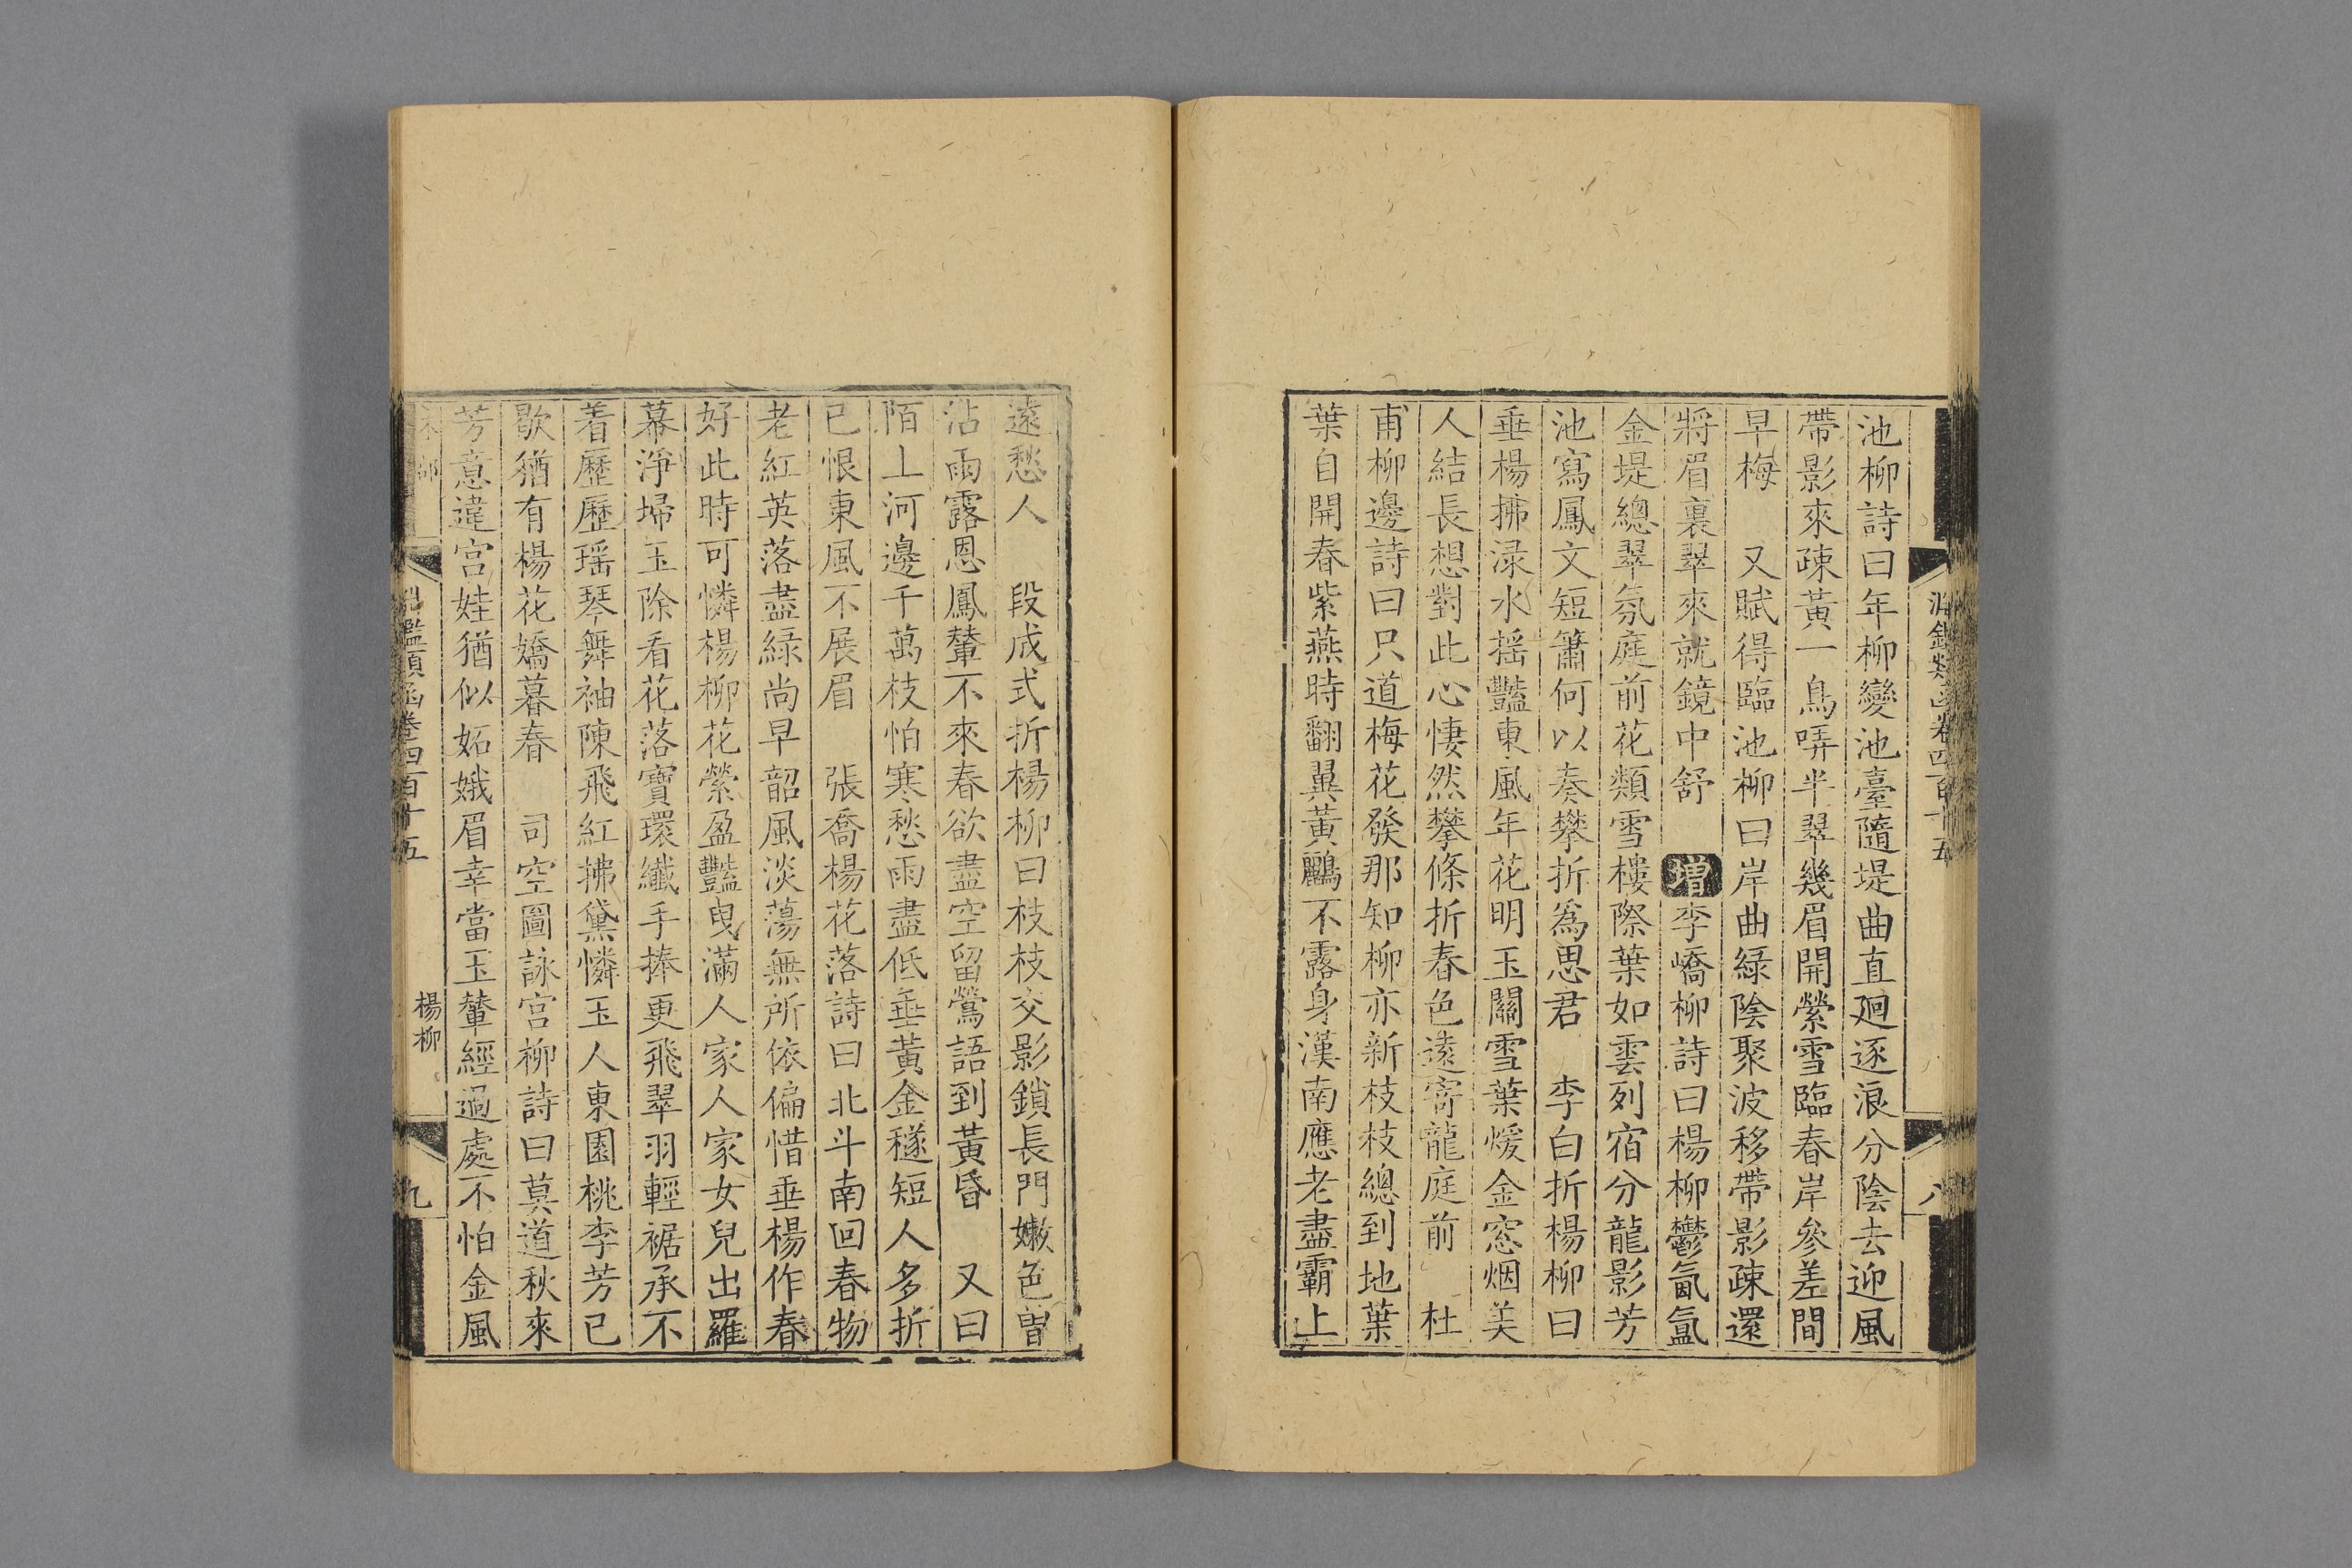 池柳詩曰年柳變池臺隨堤曲直廻逐浪分陰去迎風
帶影來疎黃一鳥哢半翠幾眉開縈雪臨春岸參差間
早梅　又賦得臨池柳曰岸曲綠陰聚波移帶影疎還
將眉裏翠來就鏡中舒　增李嶠柳詩曰楊柳鬱氤氳
金堤總翠氛庭前花類雪樓際葉如雲列宿分龍影芳
池寫鳳文短簫何以奏攀折爲思君　李白折楊柳曰
垂楊拂渌水搖豔東風年花明玉關雪葉煖金窓烟美
人結長想對此心悽然攀條折春色遠寄龍庭前　杜
甫柳邊詩曰只道梅花發那知柳亦新枝枝總到地葉
葉自開春紫燕時翻翼黃鸝不露身漢南應老盡霸上
淵鑑類函卷四百十五
八
遠愁人　段成式折楊柳曰枝枝交影鎖長門嫩色曽
沾雨露恩鳳輦不來春欲盡空留鶯語到黃昏　又曰
陌上河邊千萬枝怕寒愁雨盡低垂黃金穟短人多折
已恨東風不展眉　張喬楊花落詩曰北斗南回春物
老紅英落盡綠尚早韶風淡蕩無所依偏惜垂楊作春
好此時可憐楊柳花縈盈豔曳滿人家人家女兒出羅
幕淨埽玉除看花落寶環纖手捧更飛翠羽輕裾承不
着歷歷瑶琴舞袖陳飛紅拂黛憐玉人東園桃李芳已
歇猶有楊花嬌暮春　司空圖詠宮柳詩曰莫道秋來
芳意違宮娃猶似妬娥眉幸當玉輦經過處不怕金風
鑑類函卷四百十五
楊柳
九